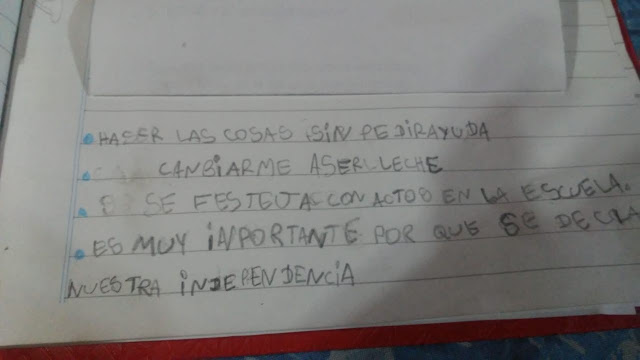 HASER LAS COSAS SIN PEDIRAYUDA
CANBIARME ASERLLECHE
SE FESTEJA CON ACTOS EN LA ESCUELA.
ES MUY INPORTANTE POR QUE SE DECRA
NUESTRA INDEPENDENCIA